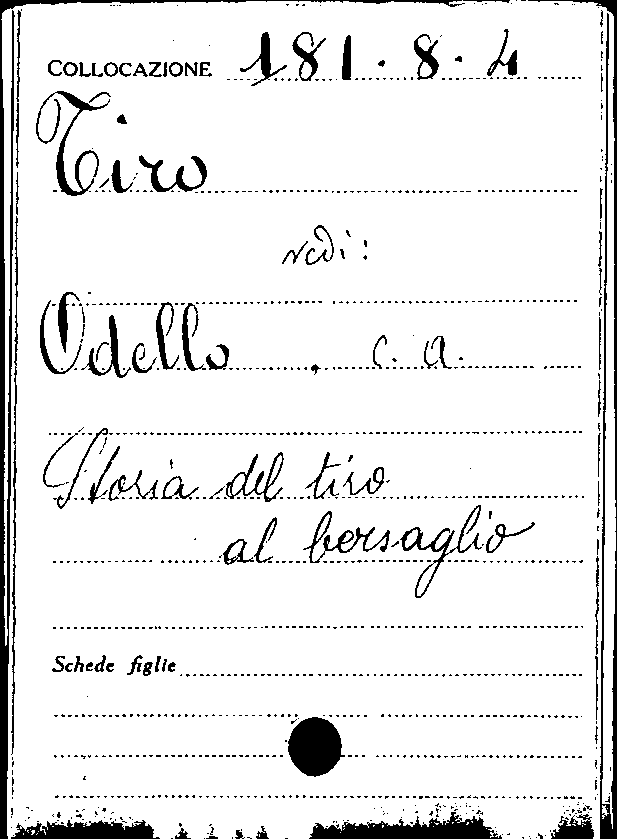 COLLOCAZIONE 181.8.4
Tiro
vedi:
Odello, C. A.
Storia del tiro
al bersaglio
Schede figlie